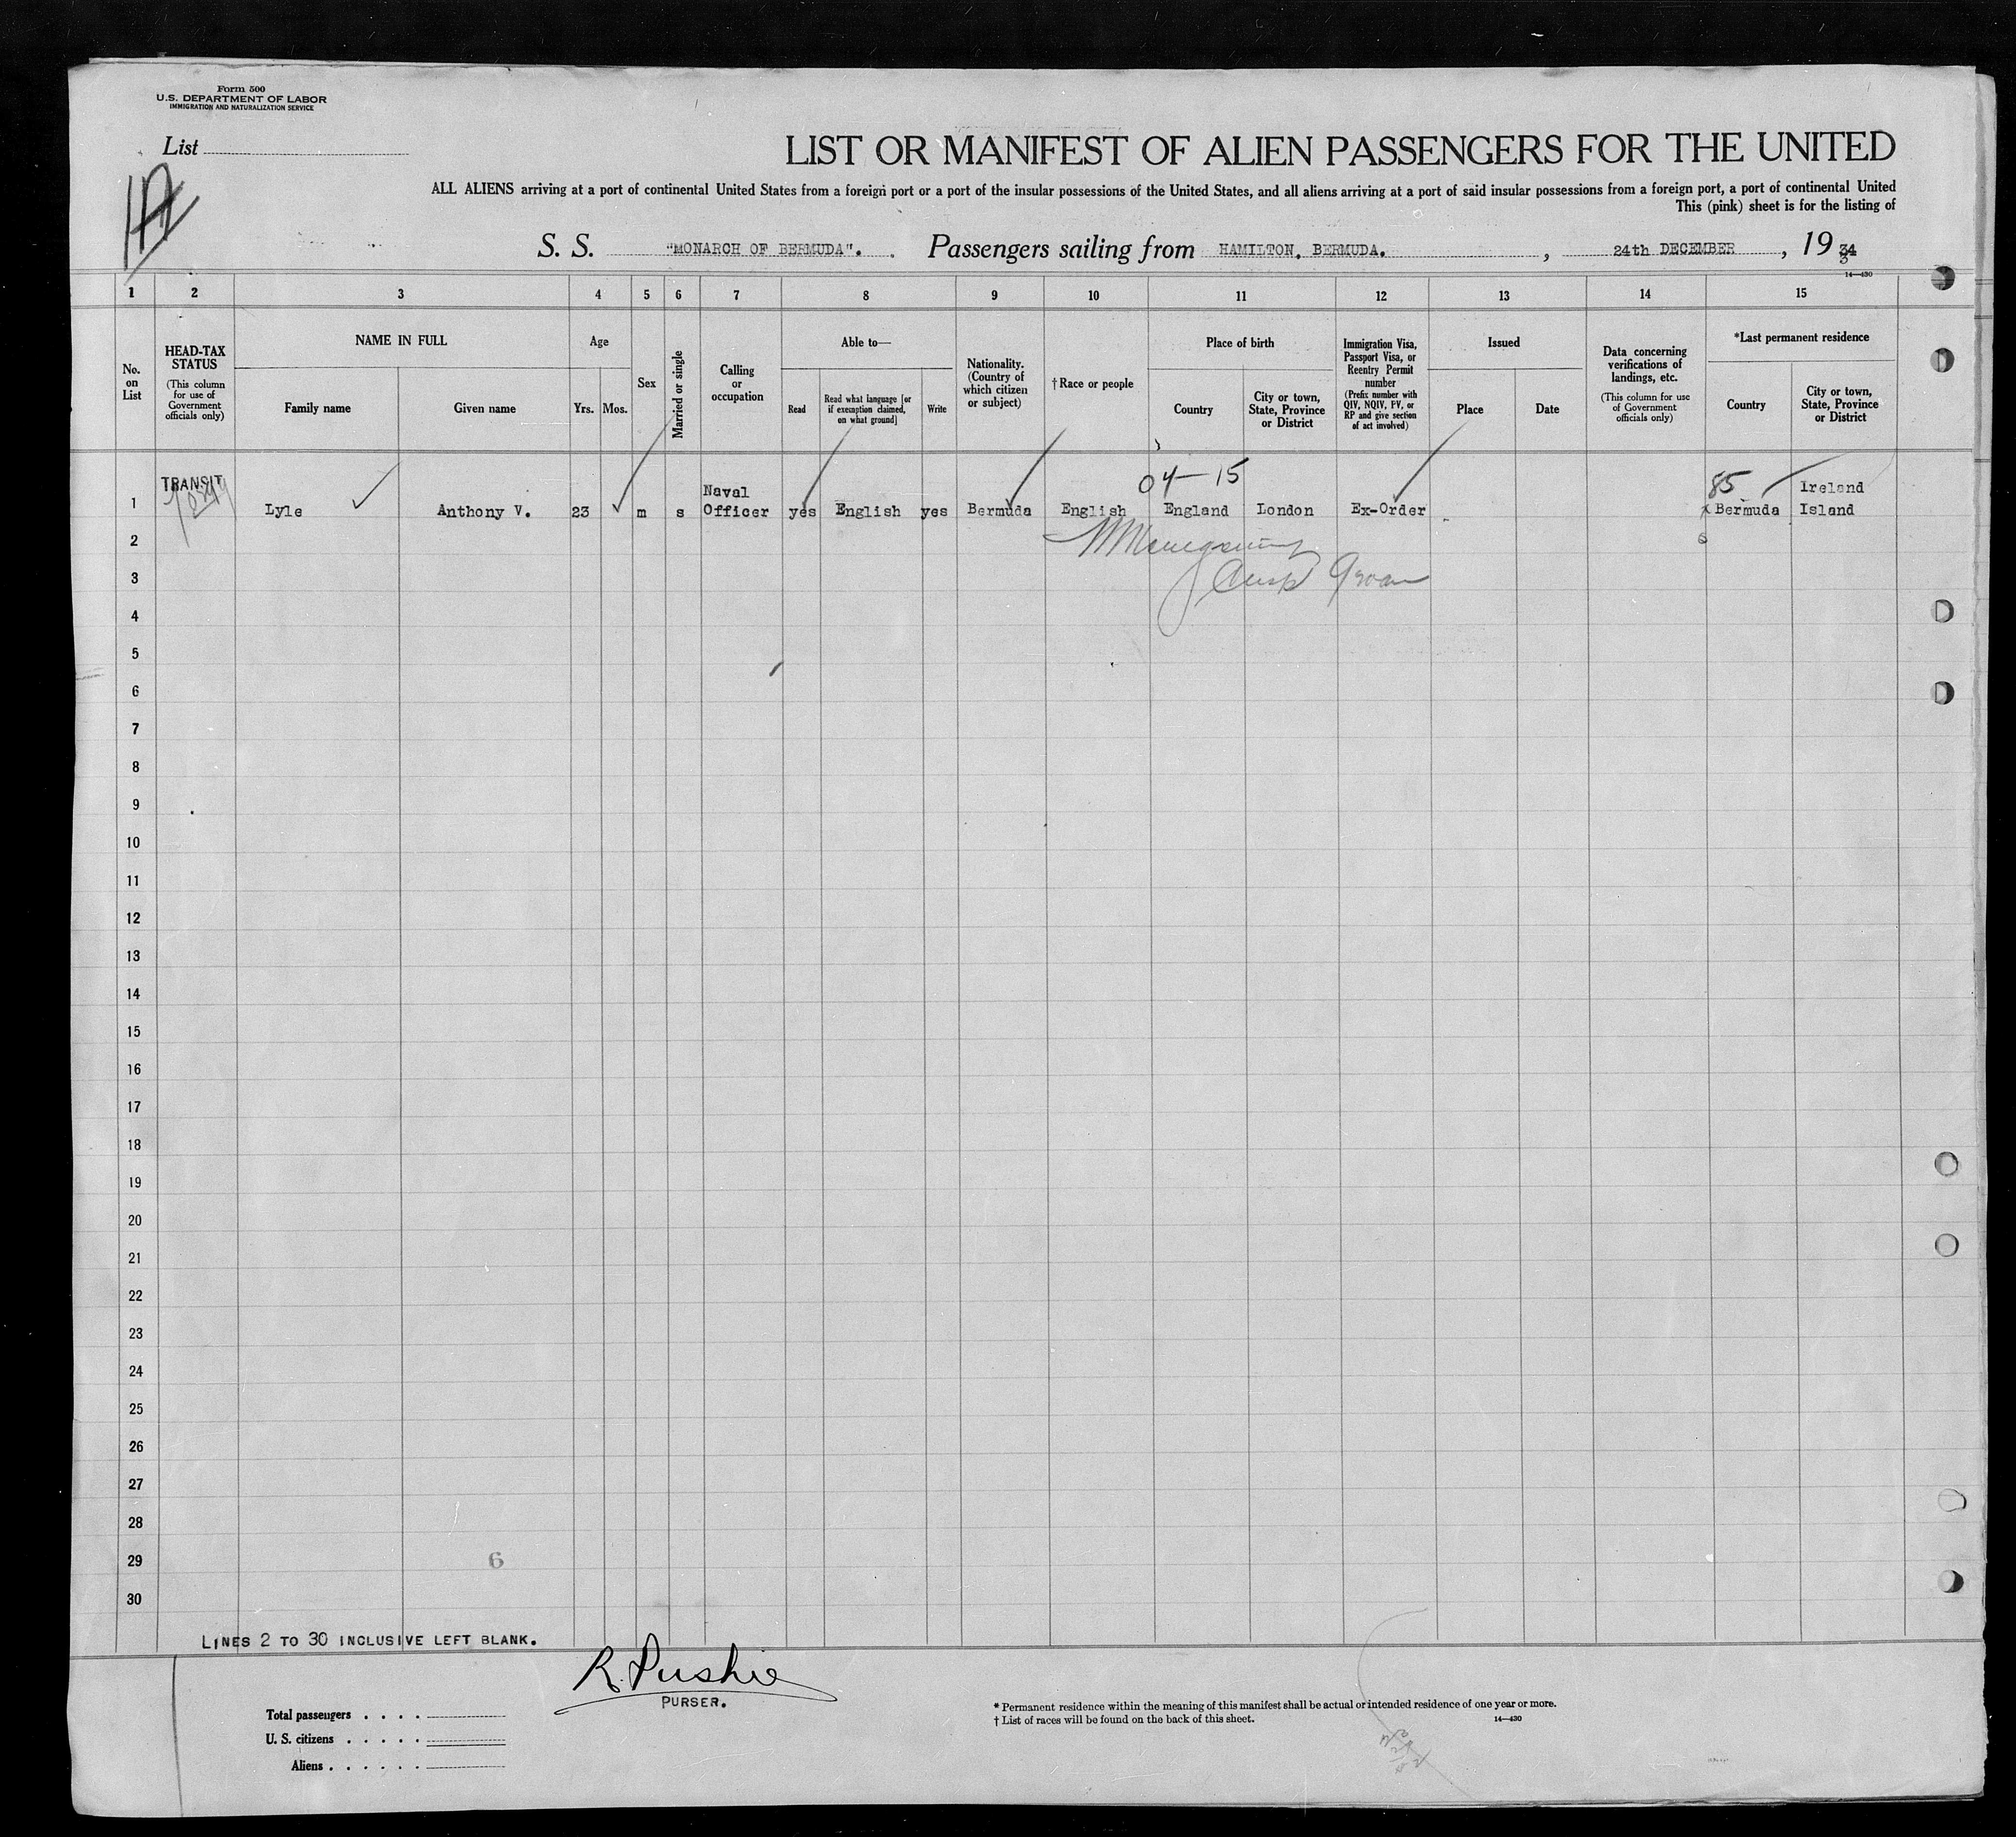 Form 500
U.S. DEPARTMENT OF LABOR
IMMIGRATION AND NATURALIZATION SERVICE
List
LIST OR MANIFEST OF ALIEN PASSENGERS FOR THE UNITED
ALL ALIENS arriving at a port of continental United States from a foreign port or a port of the insular possessions of the United States, and all aliens arriving at a port of said insular possessions from a foreign port, a port of continental United
This (pink) sheet is for the listing of
S. S. "MONARCH OF BERMUDA". Passengers sailing from HAMILTON, BERMUDA. , 24th DECEMBER , 19 34
3
14—430
1 2 3 4 5 6 7 8 9 10 11 12 13 14 15
No. on List
HEAD-TAX STATUS
(This column for use of Government officials only)
NAME IN FULL
Family name
Given name
Age
Yrs.
Mos.
Sex
Married or single
Calling or occupation
Able to—
Read
Read what language [or if exemption claimed, on what ground]
Write
Nationality. (Country of which citizen or subject)
†Race or people
Place of birth
Country
City or town, State, Province or District
Immigration Visa, Passport Visa, or Reentry Permit number
(Prefix number with QIV, NQIV, PV, or RP and give section of act involved)
Issued
Place
Date
Data concerning verifications of landings, etc.
(This column for use of Government officials only)
*Last permanent residence
Country
City or town, State, Province or District
04-15
85
TRANSIT
1 Lyle Anthony V. 23 m s Naval Officer yes English yes Bermuda English England London Ex-Order Bermuda Ireland Island
2
3
4
5
6
7
8
9
10
11
12
13
14
15
16
17
18
19
20
21
22
23
24
25
26
27
28
29
6
30
LINES 2 TO 30 INCLUSIVE LEFT BLANK.
R. Pushie
PURSER.
Total passengers . . . .
U. S. citizens . . . . .
Aliens . . . . . .
* Permanent residence within the meaning of this manifest shall be actual or intended residence of one year or more.
† List of races will be found on the back of this sheet.
14—430